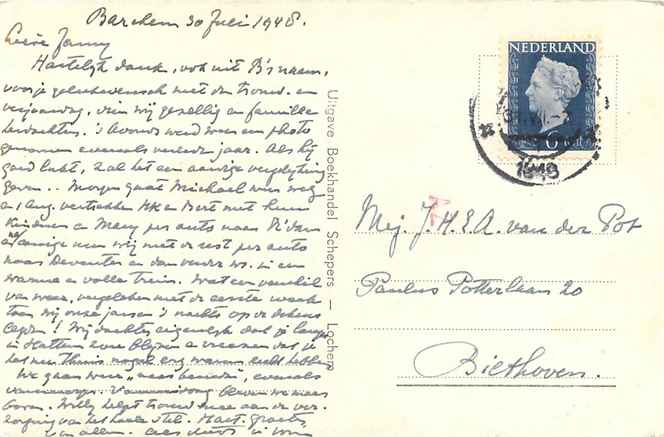 Barchem 30 Juli 1948.
Lieve Jenny
Hartelijk dank, ook uit B's naam,
voor je gelukwensch met den trouw- en
verjaardag, dien wij gezellig en famille
herdachten. 's Avonds werd weer een photo
genomen evenals verleden jaar. Als hij
goed lukt, zal het een aardige verrassing
geven.. Morgen gaat Michael weer weg
en 1 Aug. vertrekken en Bert met hun
kinderen en Mary per auto naar R'dam
wij met de rest per auto
naar Deventer en dan verder in een
warme en volle trein. Wat een verschil
van weer, vergeleken met de eerste week
toen wij onze jassen 's nachts op de dekens
legden! Wij dachten eigenlijk dat je langer
in Hattem zou blijven en vreezen dat je
het hier thuis nogal erg warm zult hebben
We gaan weer "naar beneden", evenals
vanmorgen. Vanmiddag bleven we naar
boven. Willy helpt trouw mee aan de ver-
zorging van het heele stel. Hart. groeten
van allen.
Uitgave Boekhandel Schepers — Lochem
NEDERLAND
6
1948
Mej. J.H.E.A. van der Pot
Paulus Potterlaan 20
Bilthoven.